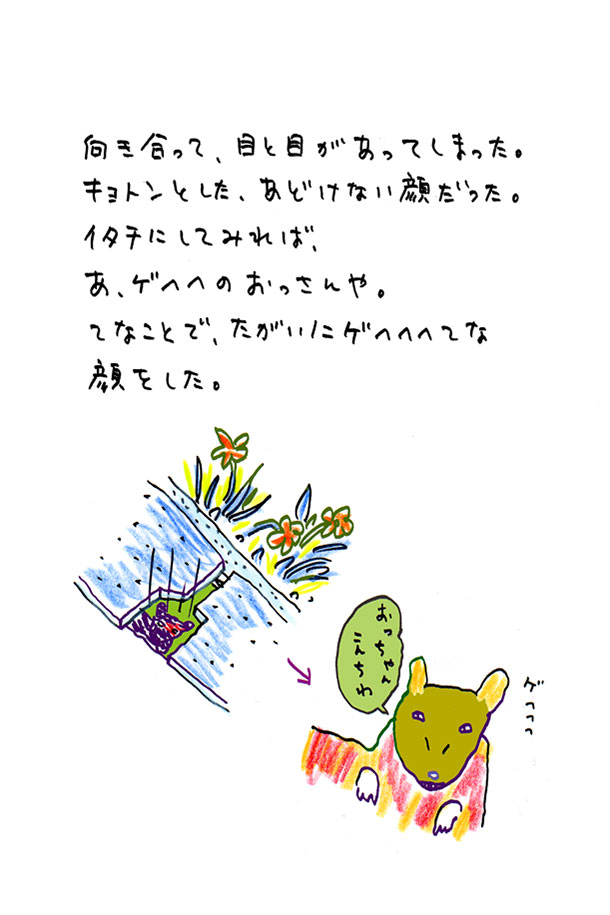 向き合って、目と目があってしまった。
キョトンとした、あどけない顔だった。
イタチにしてみれば、
あ、ゲヘヘのおっさんや。
てなことで、たがいにゲヘヘヘてな
顔をした。
おっちゃん
こんちわ
ゲヘヘヘ